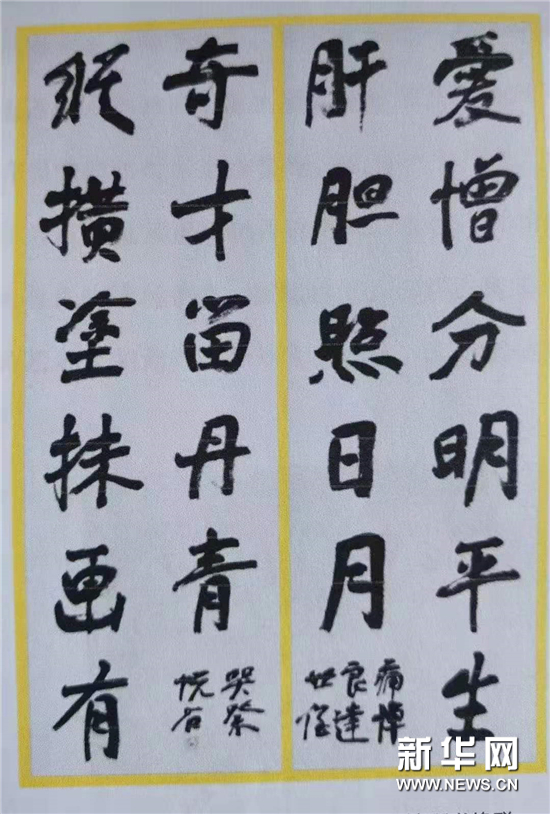 愛憎分明平生
肝胆照日月
痛悼
良達
世侄
縱横塗抹画有
奇才留丹青
哭祭
新华网
WWW.NEWS.CN